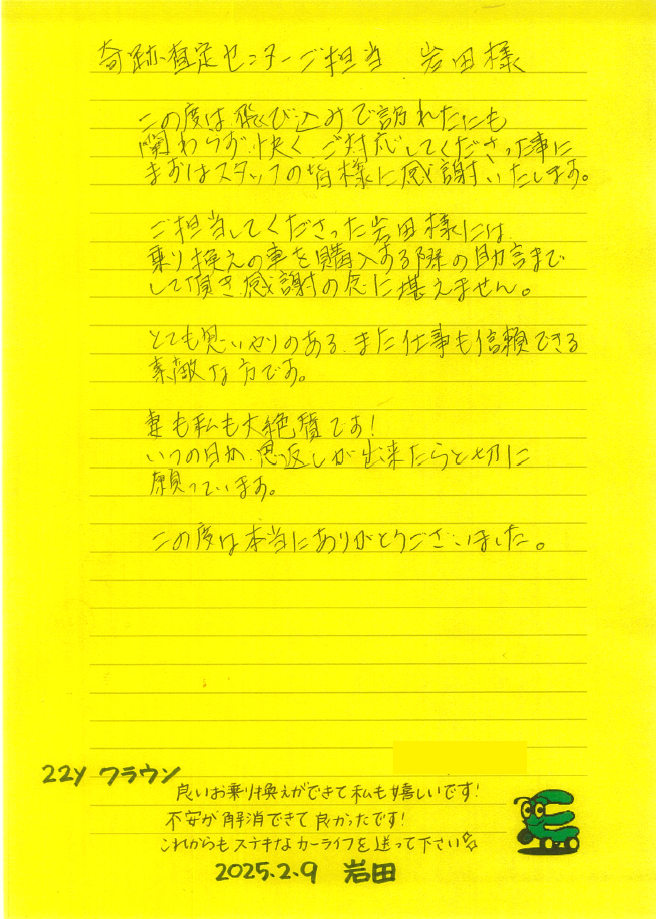 奇跡査定センターご担当 岩田様
この度は飛び込みで訪れたにも
関わらず、快くご対応してくださった事に
まずはスタッフの皆様に感謝いたします。
ご担当してくださった岩田様には
乗り換えの車を購入する際の助言まで
して頂き、感謝の念に堪えません。
とても思いやりのある、また仕事も信頼できる
素敵な方です。
妻も私も大絶賛です!
いつの日か、恩返しが出来たらと切に
願っています。
この度は本当にありがとうございました。
22y クラウン
良いお乗り換えができて私も嬉しいです!
不安が解消できて良かったです!
これからもステキなカーライフを送って下さい☆
2025.2.9 岩田